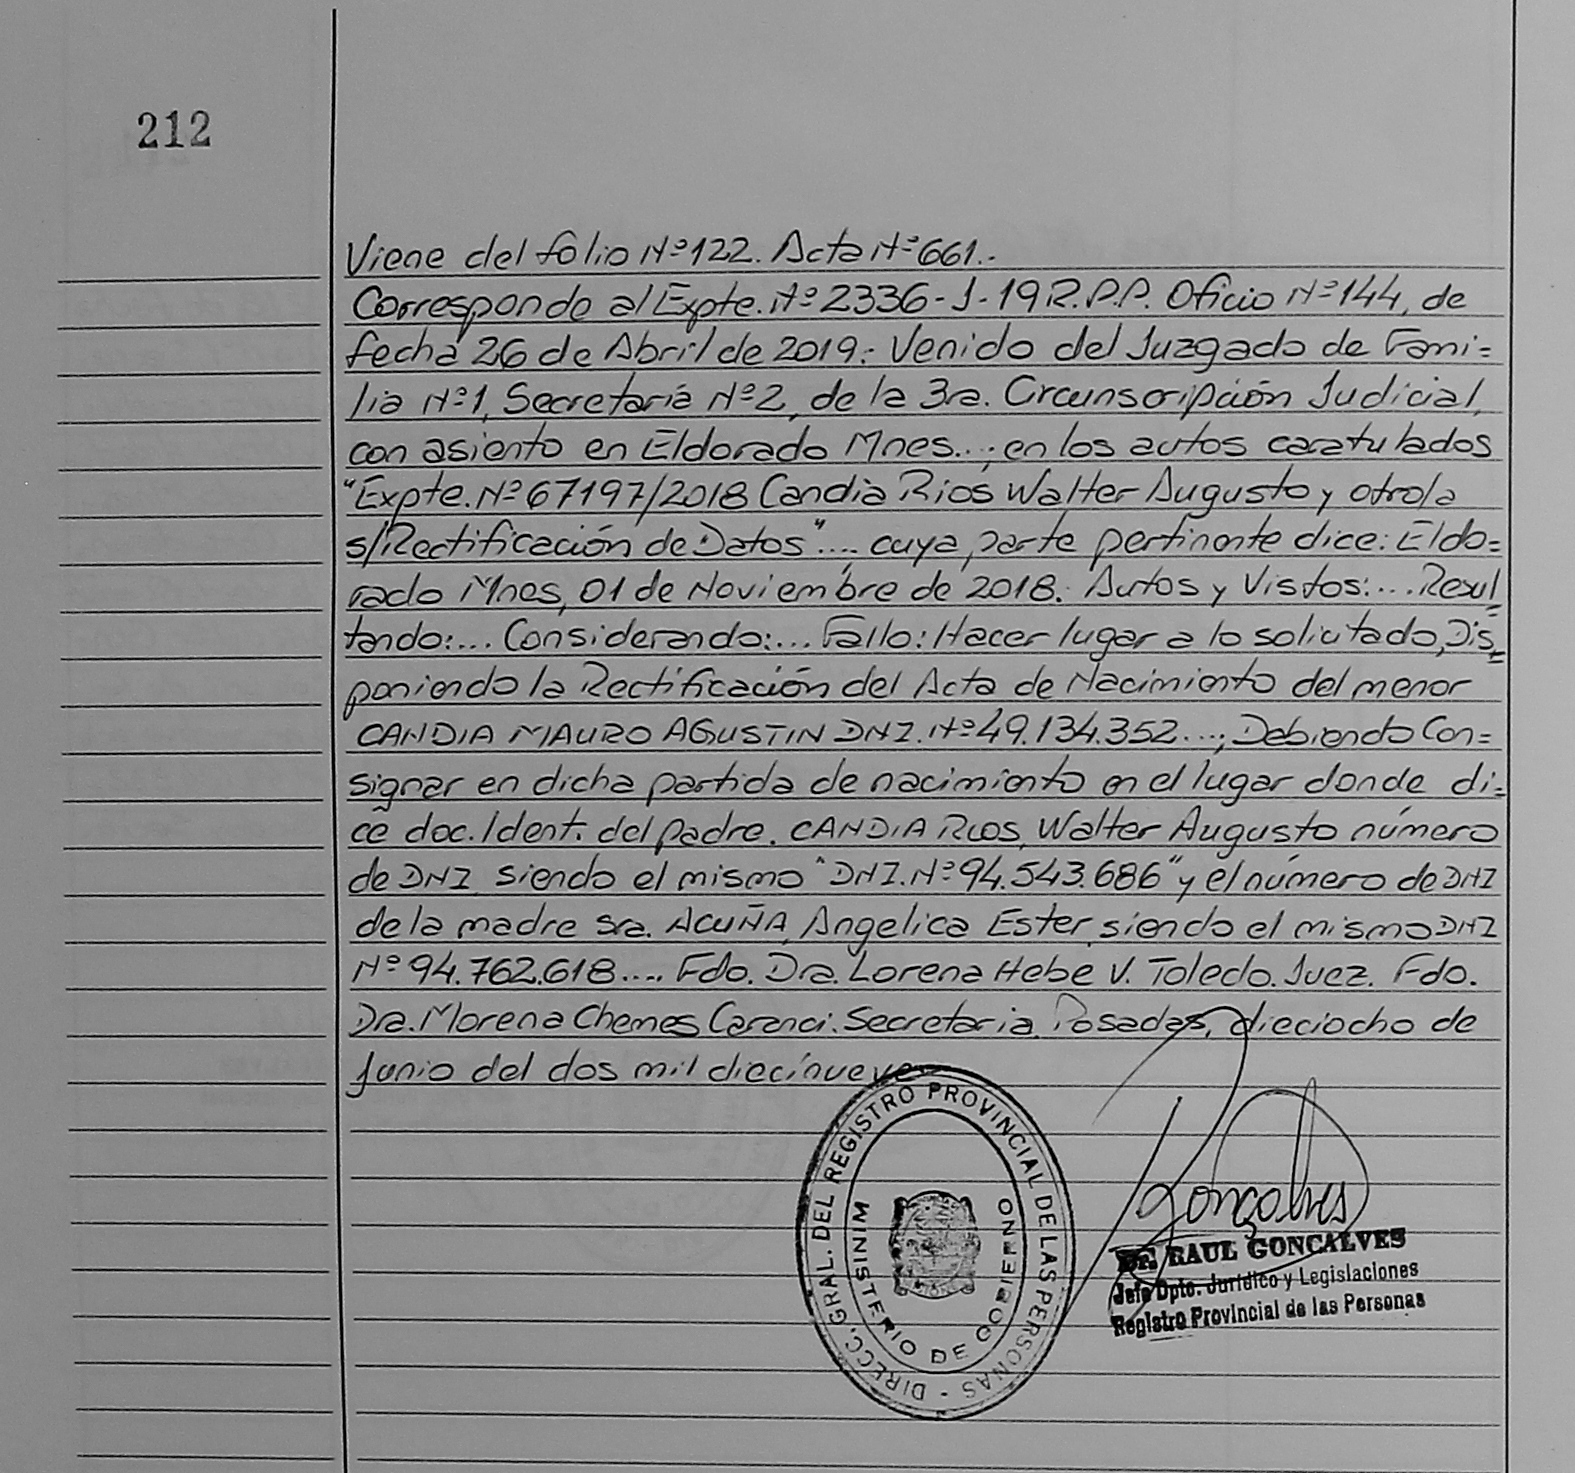 212
Viene del folio Nº122. Acta Nº661.-
Corresponde al Expte. Nº 2336-J-19 R.P.P. Oficio Nº144, de
fecha 26 de Abril de 2019.- Venido del Juzgado de Fami=
lia Nº1, Secretaría Nº2, de la 3ra. Circunscripción Judicial,
con asiento en Eldorado Mnes...; en los autos caratulados
"Expte. Nº 67197/2018 Candia Rios Walter Augusto y otro/a
s/Rectificación de Datos".... cuya parte pertinente dice: Eldo=
rado Mnes, 01 de Noviembre de 2018. Autos y Vistos:... Resul=
tando:... Considerando:... Fallo: Hacer lugar a lo solicitado, Dis=
poniendo la Rectificación del Acta de Nacimiento del menor
CANDIA MAURO AGUSTIN DNI. Nº49.134.352...; Debiendo Con=
signar en dicha partida de nacimiento en el lugar donde di=
ce doc. Ident. del padre. CANDIA RIOS, Walter Augusto número
de DNI siendo el mismo "DNI. Nº94.543.686" y el número de DNI
de la madre Sra. ACUÑA, Angelica Ester siendo el mismo DNI
Nº 94.762.618.... Fdo. Dra. Lorena Hebe V. Toledo. Juez. Fdo.
Dra. Morena Chemes Caranci. Secretaria. Posadas, dieciocho de
Junio del dos mil diecinueve
DIRECC. GRAL. DEL REGISTRO PROVINCIAL DE LAS PERSONAS -
MINISTERIO DE GOBIERNO
Goncalves
Dr. RAUL GONCALVES
Jefe Dpto. Jurídico y Legislaciones
Registro Provincial de las Personas